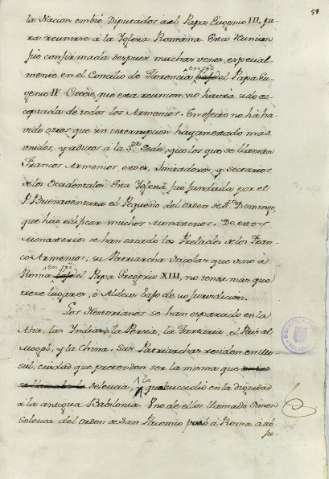 la Nacion embió Diputados a el Papa Eugenio III, pa-
ra reunirse a la Yglesia Romana. Esta reunion
fue confirmada despues muchas veces, especial-
mente en el Concilio de Florencia del Papa Eu-
genio IV. que esta reunion no havia sido ac-
ceptada de todos los Armenios. En efecto no há ha-
vido otros que sin interrupcion hayan estado mas
unidos, y adictos a la Sta. Sede, que los que se llaman
Francos Armenios, esto es, imitadores, y sectarios
de los Occidentales. Esta Yglesia fue fundada por el
el Pequeño del Orden de Sto. Domingo,
que hizo edificar muchos Monasterios. De estos
Monasterios se han sacado los Prelados de los Fran-
cos Armenios; su Patriarcha Nicolas que vino á
Roma del Papa Gregorio XIII, no tenia mas que
trece lugares, ó Aldeas bajo de su jurisdiccion.
Los Nestorianos se han esparcido en la
Asia, las Yndias, la Persia, la Tartaria, el
Mogol, y la China. Sus Patriarchas residen en Mu-
sul, ciudad que pretenden ser la misma que
Seleucia, que sucedió en la dignidad
a la antigua Babilonia. Uno de ellos llamado Simon
del Orden de San Pacomio pasó á Roma a